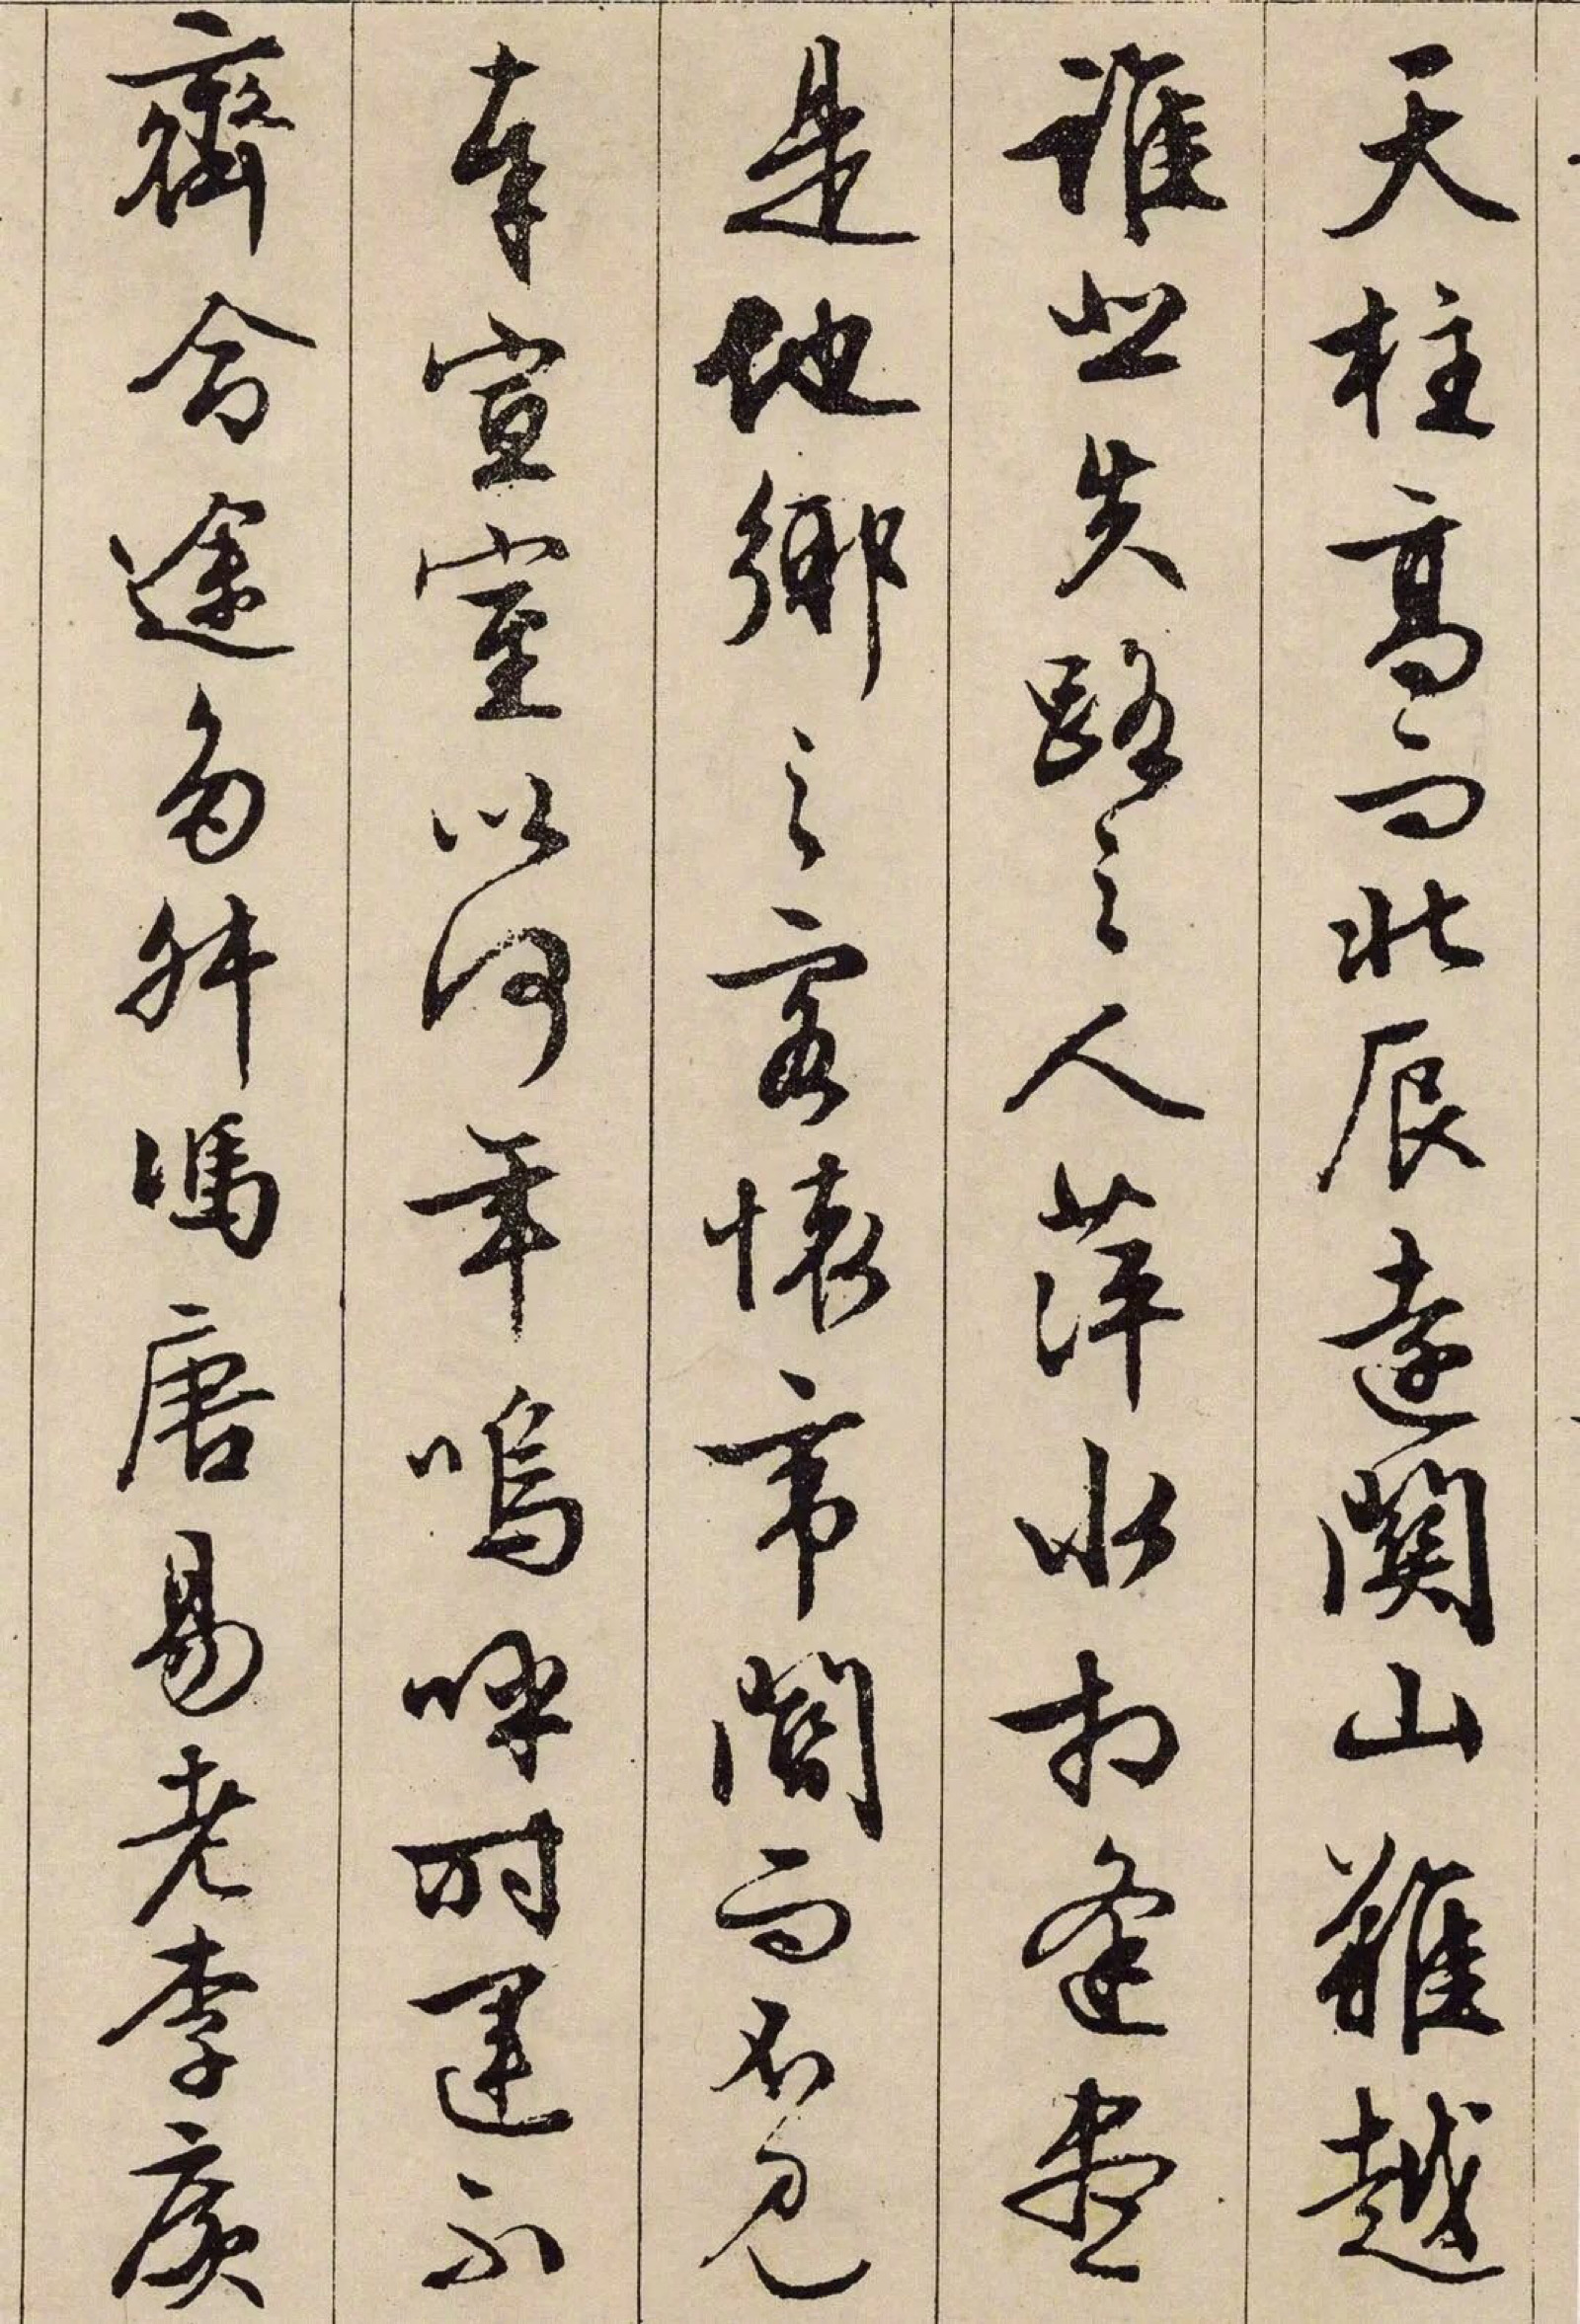 天柱高而北辰遠關山難越
誰悲失路之人萍水相逢盡
是他鄉之客懷帝閽而不見
奉宣室以何年嗚呼時運不
齊命途多舛馮唐易老李廣